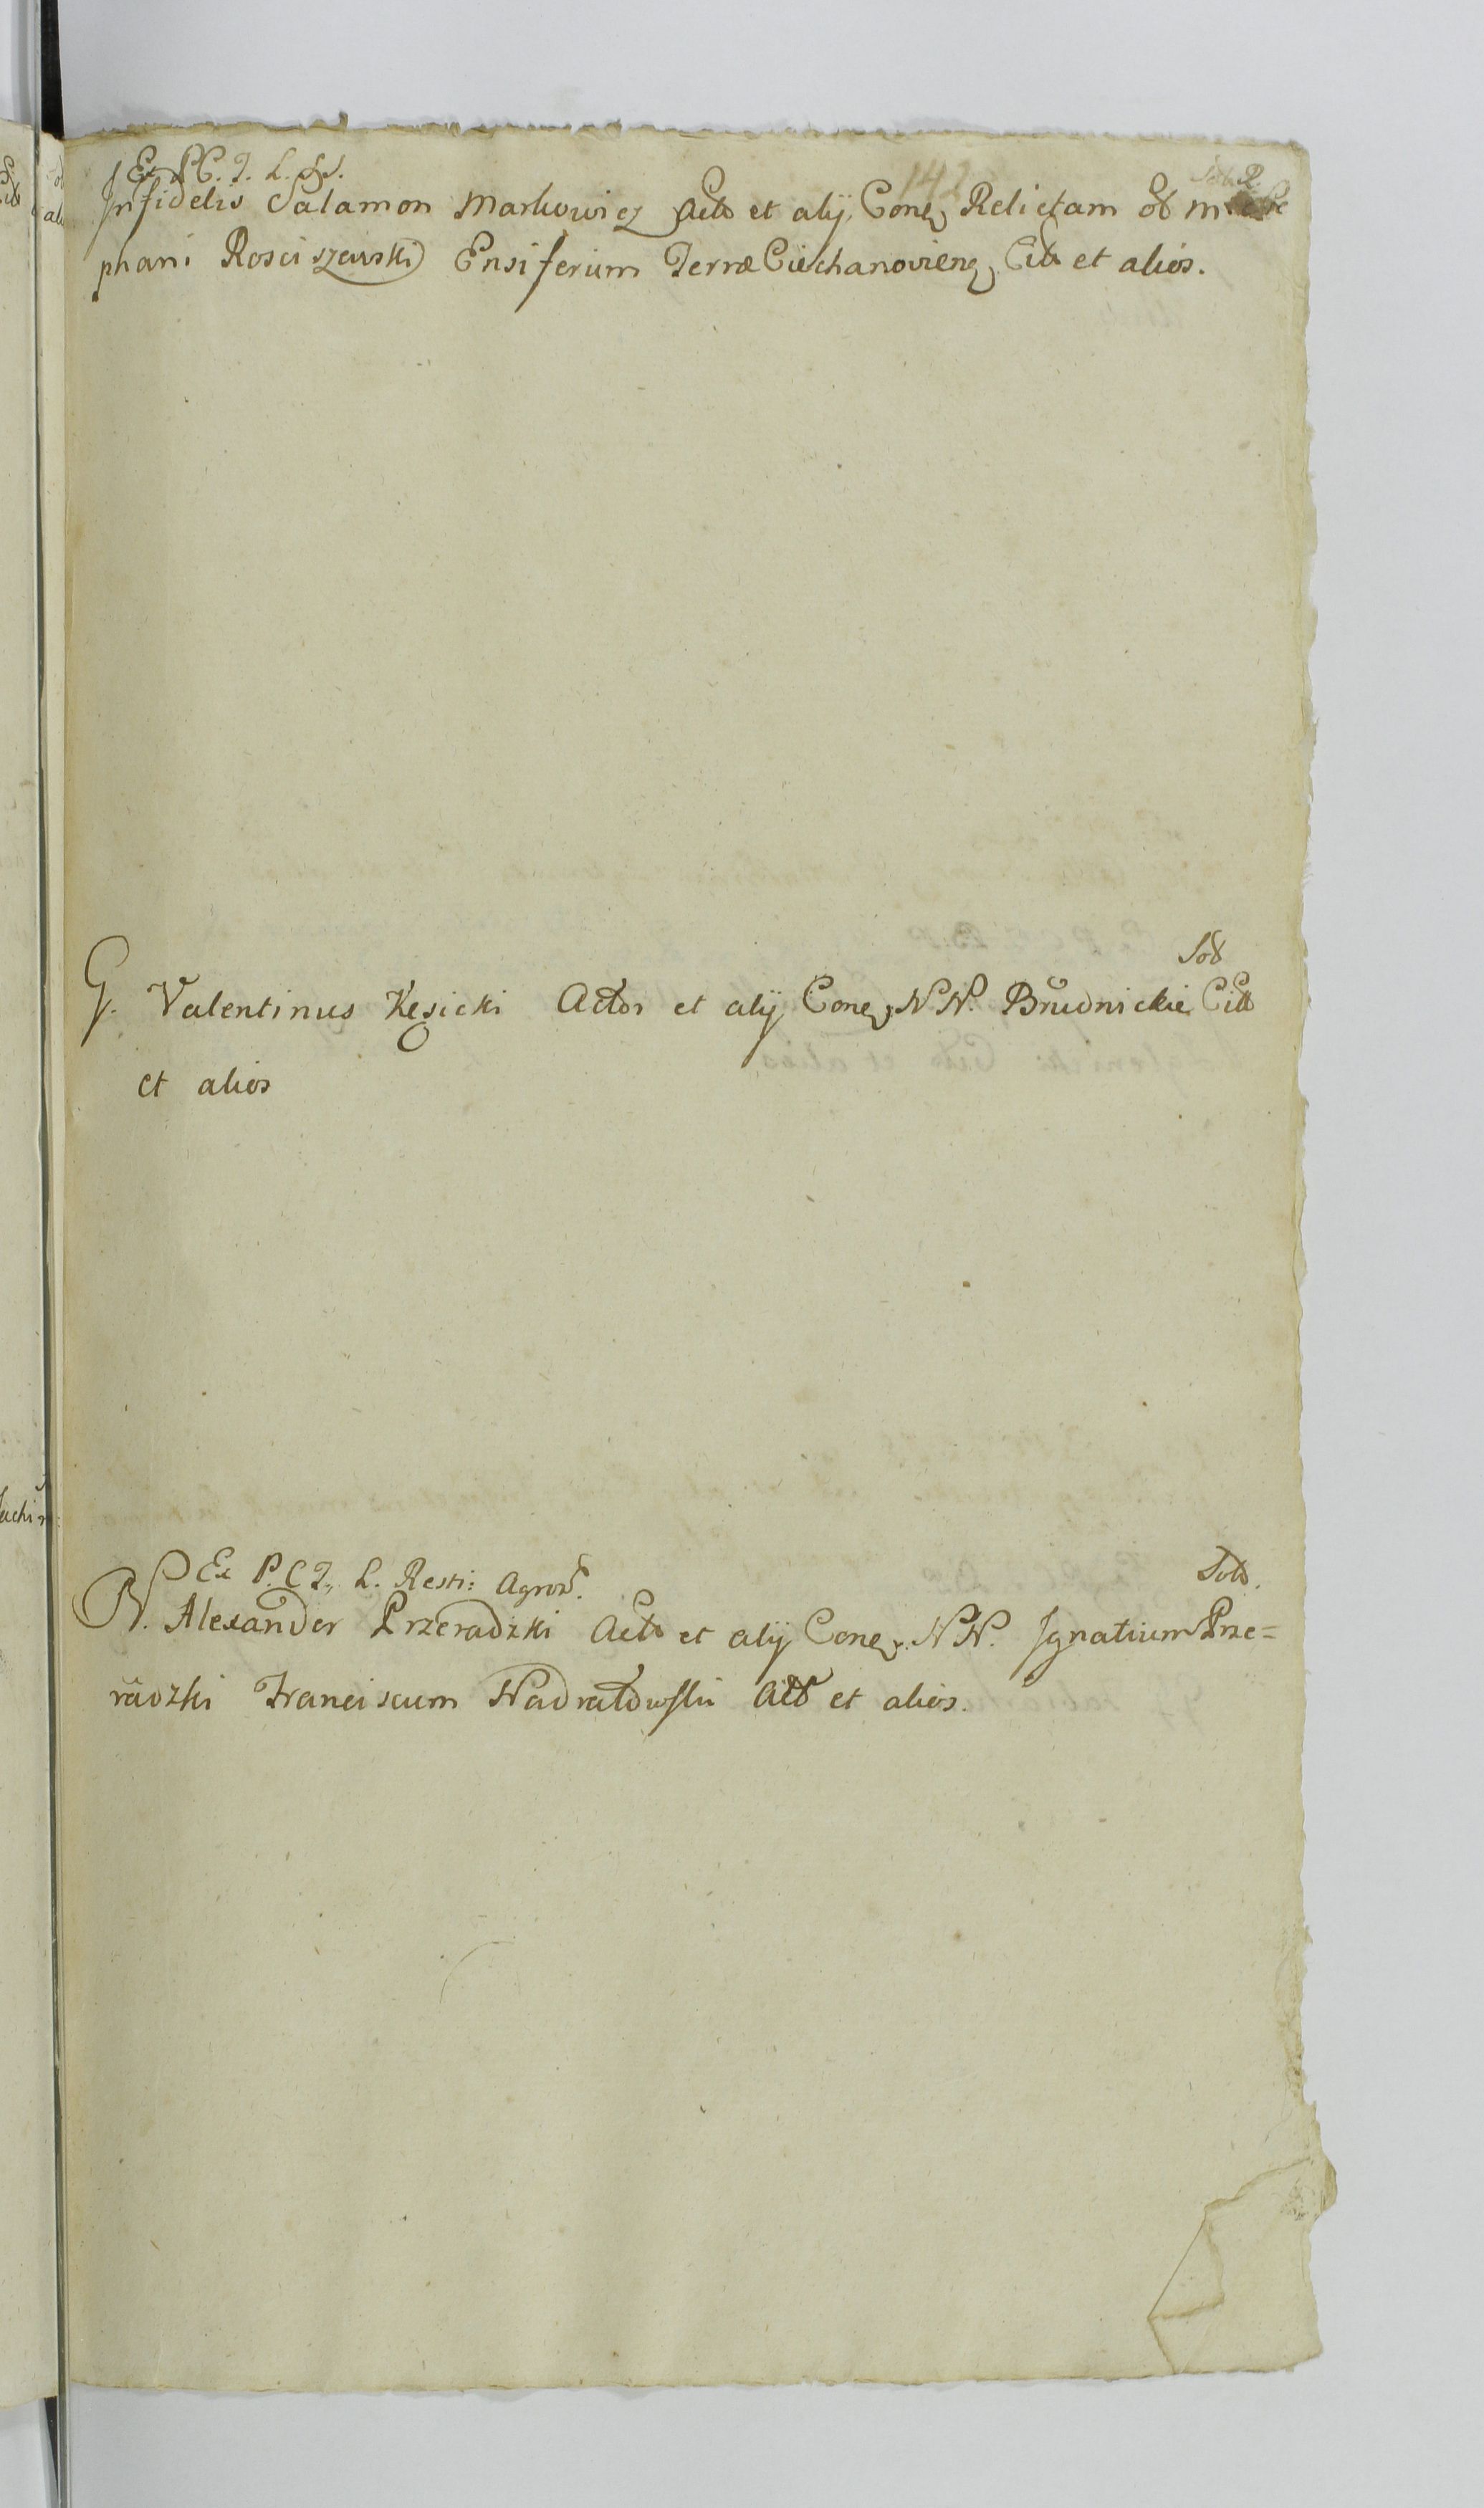 Ex P.C. J. L. S.
Infidelis Salamon Markowicz Acto et alij Conq Relictam ol M
phani Rosciszewski Ensiferum Terræ Ciechanovienq Citt et alios.
Sol
G. Valentinus Kęsicki Actor et alij Conq NN. Brudnickie Citt
et alios
Ex P.C J. L. Resti: Agror. Solt.
N. Alexander Przeradzki Acto et alij Conq. NN. Ignatium Prze=
radzki Franciscum Nadratowski Citt et alios.